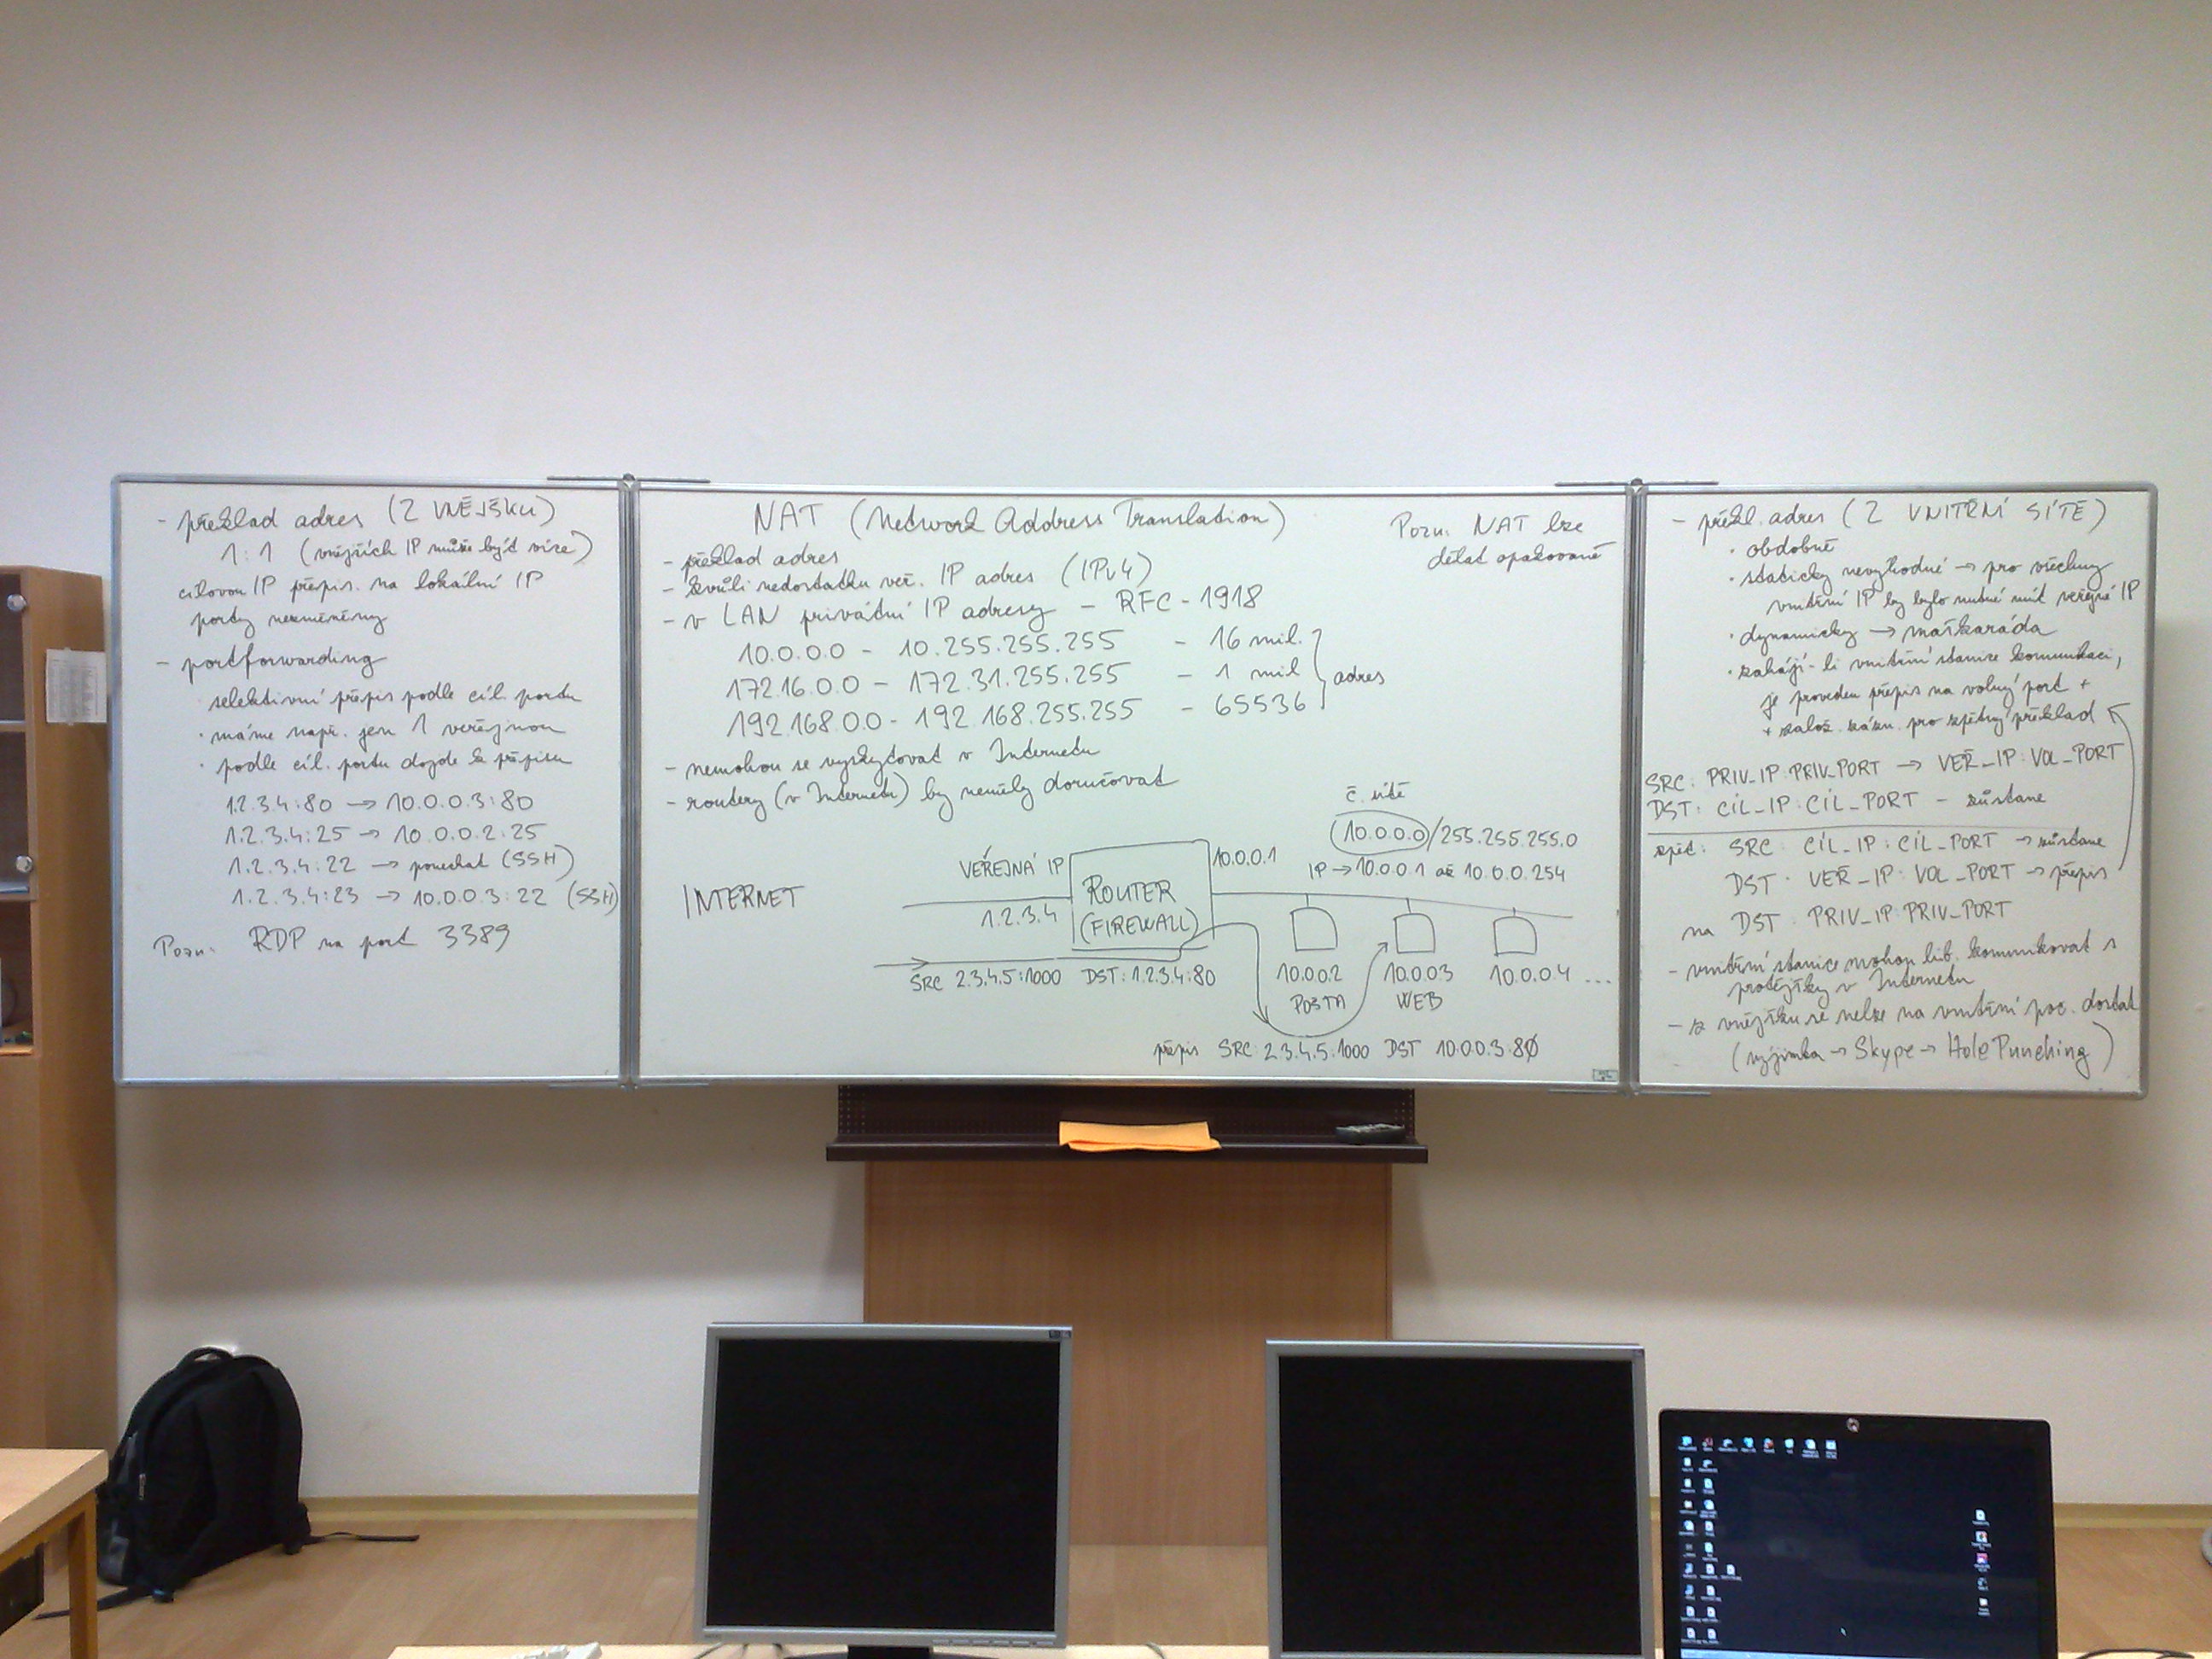 - překlad adres (Z VNĚJŠKU)
1:1 (vnějších IP může být více)
cílovou IP přepis. na lokální IP
porty nezměněny
- portforwarding
· selektivní přepis podle cíl. portu
· máme např. jen 1 veřejnou
· podle cíl. portu dojde k přepisu
1.2.3.4:80 → 10.0.0.3:80
1.2.3.4:25 → 10.0.0.2:25
1.2.3.4:22 → ponechat (SSH)
1.2.3.4:23 → 10.0.0.3:22 (SSH)
Pozn: RDP na port 3389
NAT (Network Address Translation)
Pozn. NAT lze
dělat opakovaně
- překlad adres
- kvůli nedostatku veř. IP adres (IPv4)
- v LAN privátní IP adresy - RFC-1918
10.0.0.0 - 10.255.255.255 - 16 mil.
172.16.0.0 - 172.31.255.255 - 1 mil
192.168.0.0 - 192.168.255.255 - 65536
adres
- nemohou se vyskytovat v Internetu
- routery (v Internetu) by neměly doručovat
č. sítě
10.0.0.0/255.255.255.0
IP → 10.0.0.1 až 10.0.0.254
INTERNET
VEŘEJNÁ IP
1.2.3.4
ROUTER
(FIREWALL)
10.0.0.1
SRC 2.3.4.5:1000 DST: 1.2.3.4:80
10.0.0.2
POŠTA
10.0.0.3
WEB
10.0.0.4 ...
přepis SRC: 2.3.4.5:1000 DST 10.0.0.3:80
- překl. adres (Z VNITŘNÍ SÍTĚ)
· obdobně
· staticky nevýhodné → pro všechny
vnitřní IP by bylo nutné mít veřejné IP
· dynamicky → maškaráda
· zahájí-li vnitřní stanice komunikaci,
je proveden přepis na volný port +
+ založ. zázn. pro zpětný překlad
SRC: PRIV_IP:PRIV_PORT → VEŘ_IP:VOL_PORT
DST: CÍL_IP:CÍL_PORT - zůstane
zpět: SRC: CÍL_IP:CÍL_PORT → zůstane
DST: VEŘ_IP:VOL_PORT → přepis
na DST: PRIV_IP:PRIV_PORT
- vnitřní stanice mohou lib. komunikovat s
protějšky v Internetu
- z vnějšku se nelze na vnitřní poč. dostat
(výjimka → Skype → Hole Punching)